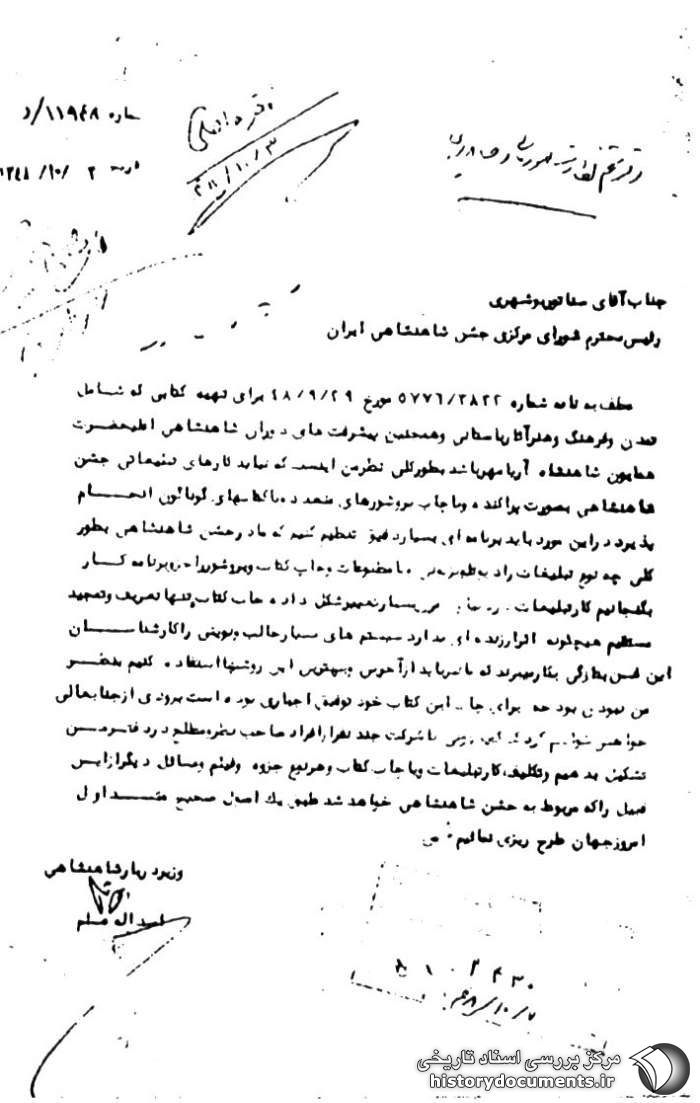 شماره ۱۱۹۴۸/د
۲ /۱۰/ ۱۳۴۸
۴۸/۱۰/۳
جناب آقای سناتور بوشهری
رئیس محترم شورای مرکزی جشن شاهنشاهی ایران
عطف به نامه شماره ۵۷۷۶/۳۸۲۲ مورخ ۴۸/۹/۲۹ برای تهیه کتابی که شامل
تمدن و فرهنگ و هنر آثار باستانی و همچنین پیشرفت های دوران شاهنشاهی اعلیحضرت
همایون شاهنشاه آریامهر باشد بطور کلی نظر من اینست که نباید کارهای تبلیغاتی جشن
شاهنشاهی بصورت پراکنده و با چاپ بروشورهای متعدد و یا کتابهای گوناگون انجام
پذیرد در این مورد باید برنامه ای بسیار دقیق تنظیم کنیم که ما در جشن شاهنشاهی بطور
کلی چه نوع تبلیغات را مطبوعات و چاپ کتاب و بروشور را جزو برنامه کار
بگنجانیم کار تبلیغات بسیار تغییر شکل داده چاپ کتاب و تنها تعریف و تمجید
مستقیم هیچگونه اثر ارزنده ای ندارد سیستم های بسیار جالب و نوینی را کارشناسان
این فن بتازگی بکار میبرند که ما نیز باید از آخرین و بهترین این روشها استفاده کنیم بنظر
من نبودن بودجه برای چاپ این کتاب خود توفیق اجباری بوده است بزودی از جنابعالی
خواهش خواهم کرد با شرکت چند نفر از افراد صاحب نظر و مطلع در دفتر من
تشکیل بدهیم و تکلیف کار تبلیغات و یا چاپ کتاب و هر نوع جزوه و فیلم و مسائل دیگر از این
قبیل را که مربوط به جشن شاهنشاهی خواهد شد طبق یک اصول صحیح متداول
امروز جهان طرح ریزی نمائیم
وزیر دربار شاهنشاهی
اسداله علم
۴۸/۱۰/۷
مرکز بررسی اسناد تاریخی
historydocuments.ir